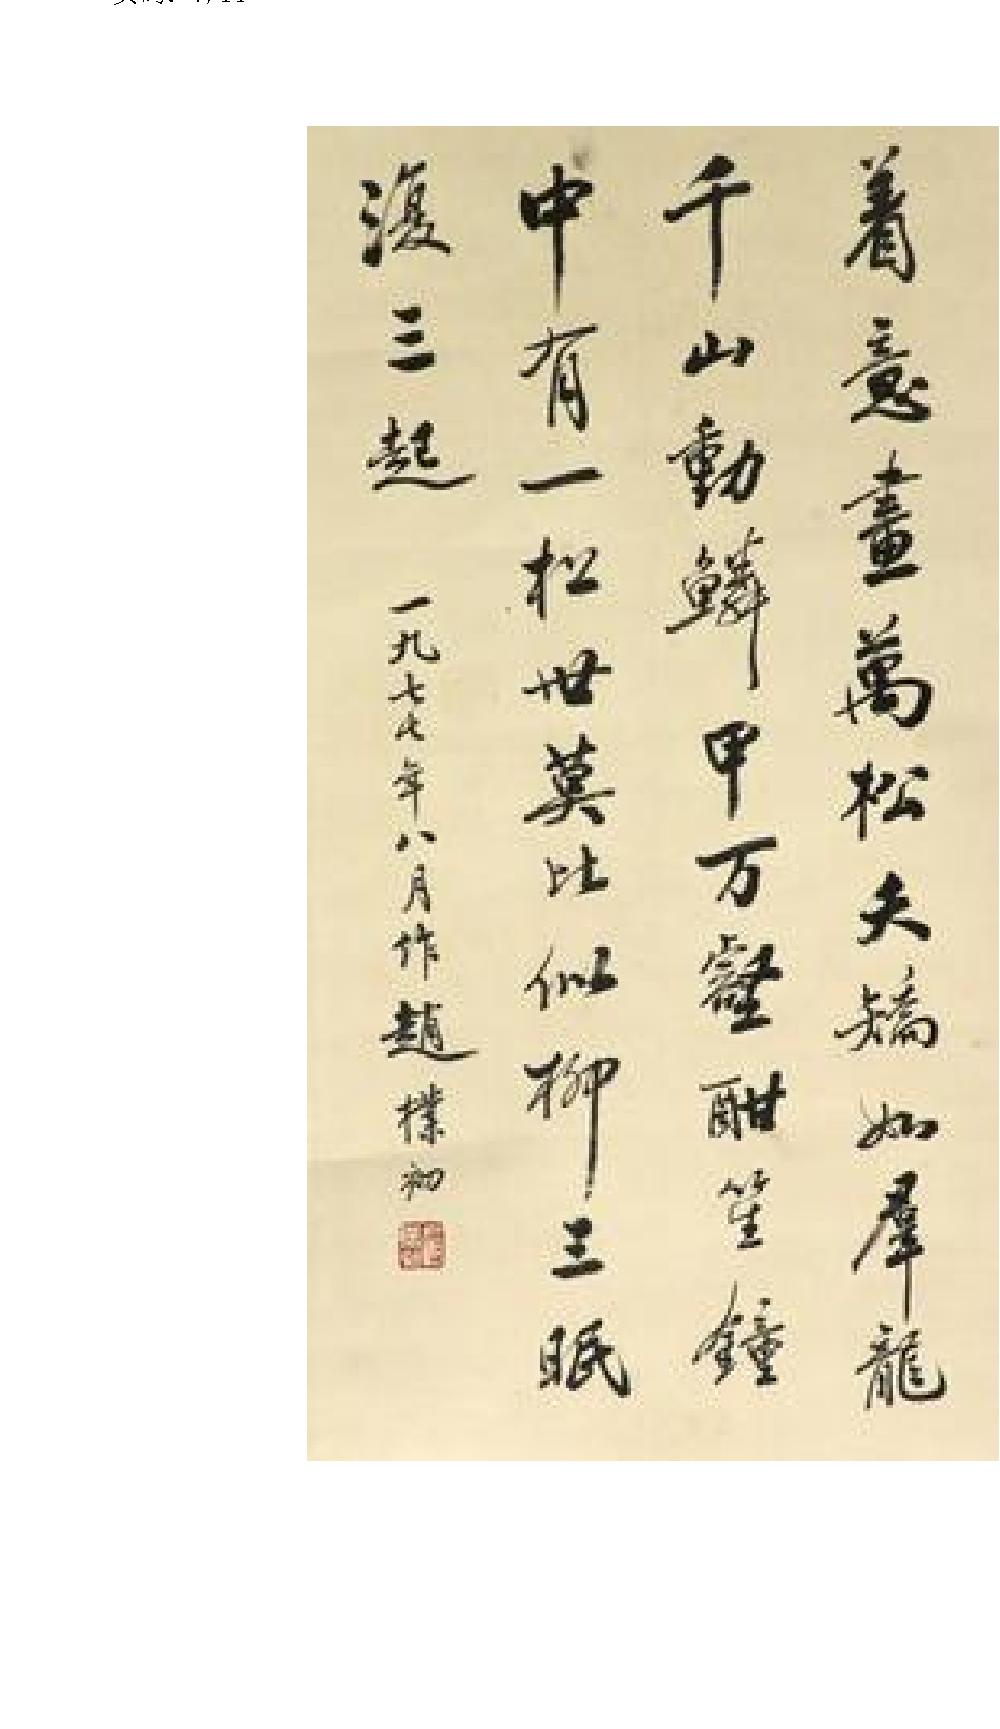 着意畫萬松夭矯如羣龍
千山動鱗甲万壑酣笙鐘
中有一松世莫比似柳三眠
復三起
一九七七年八月作趙樸初